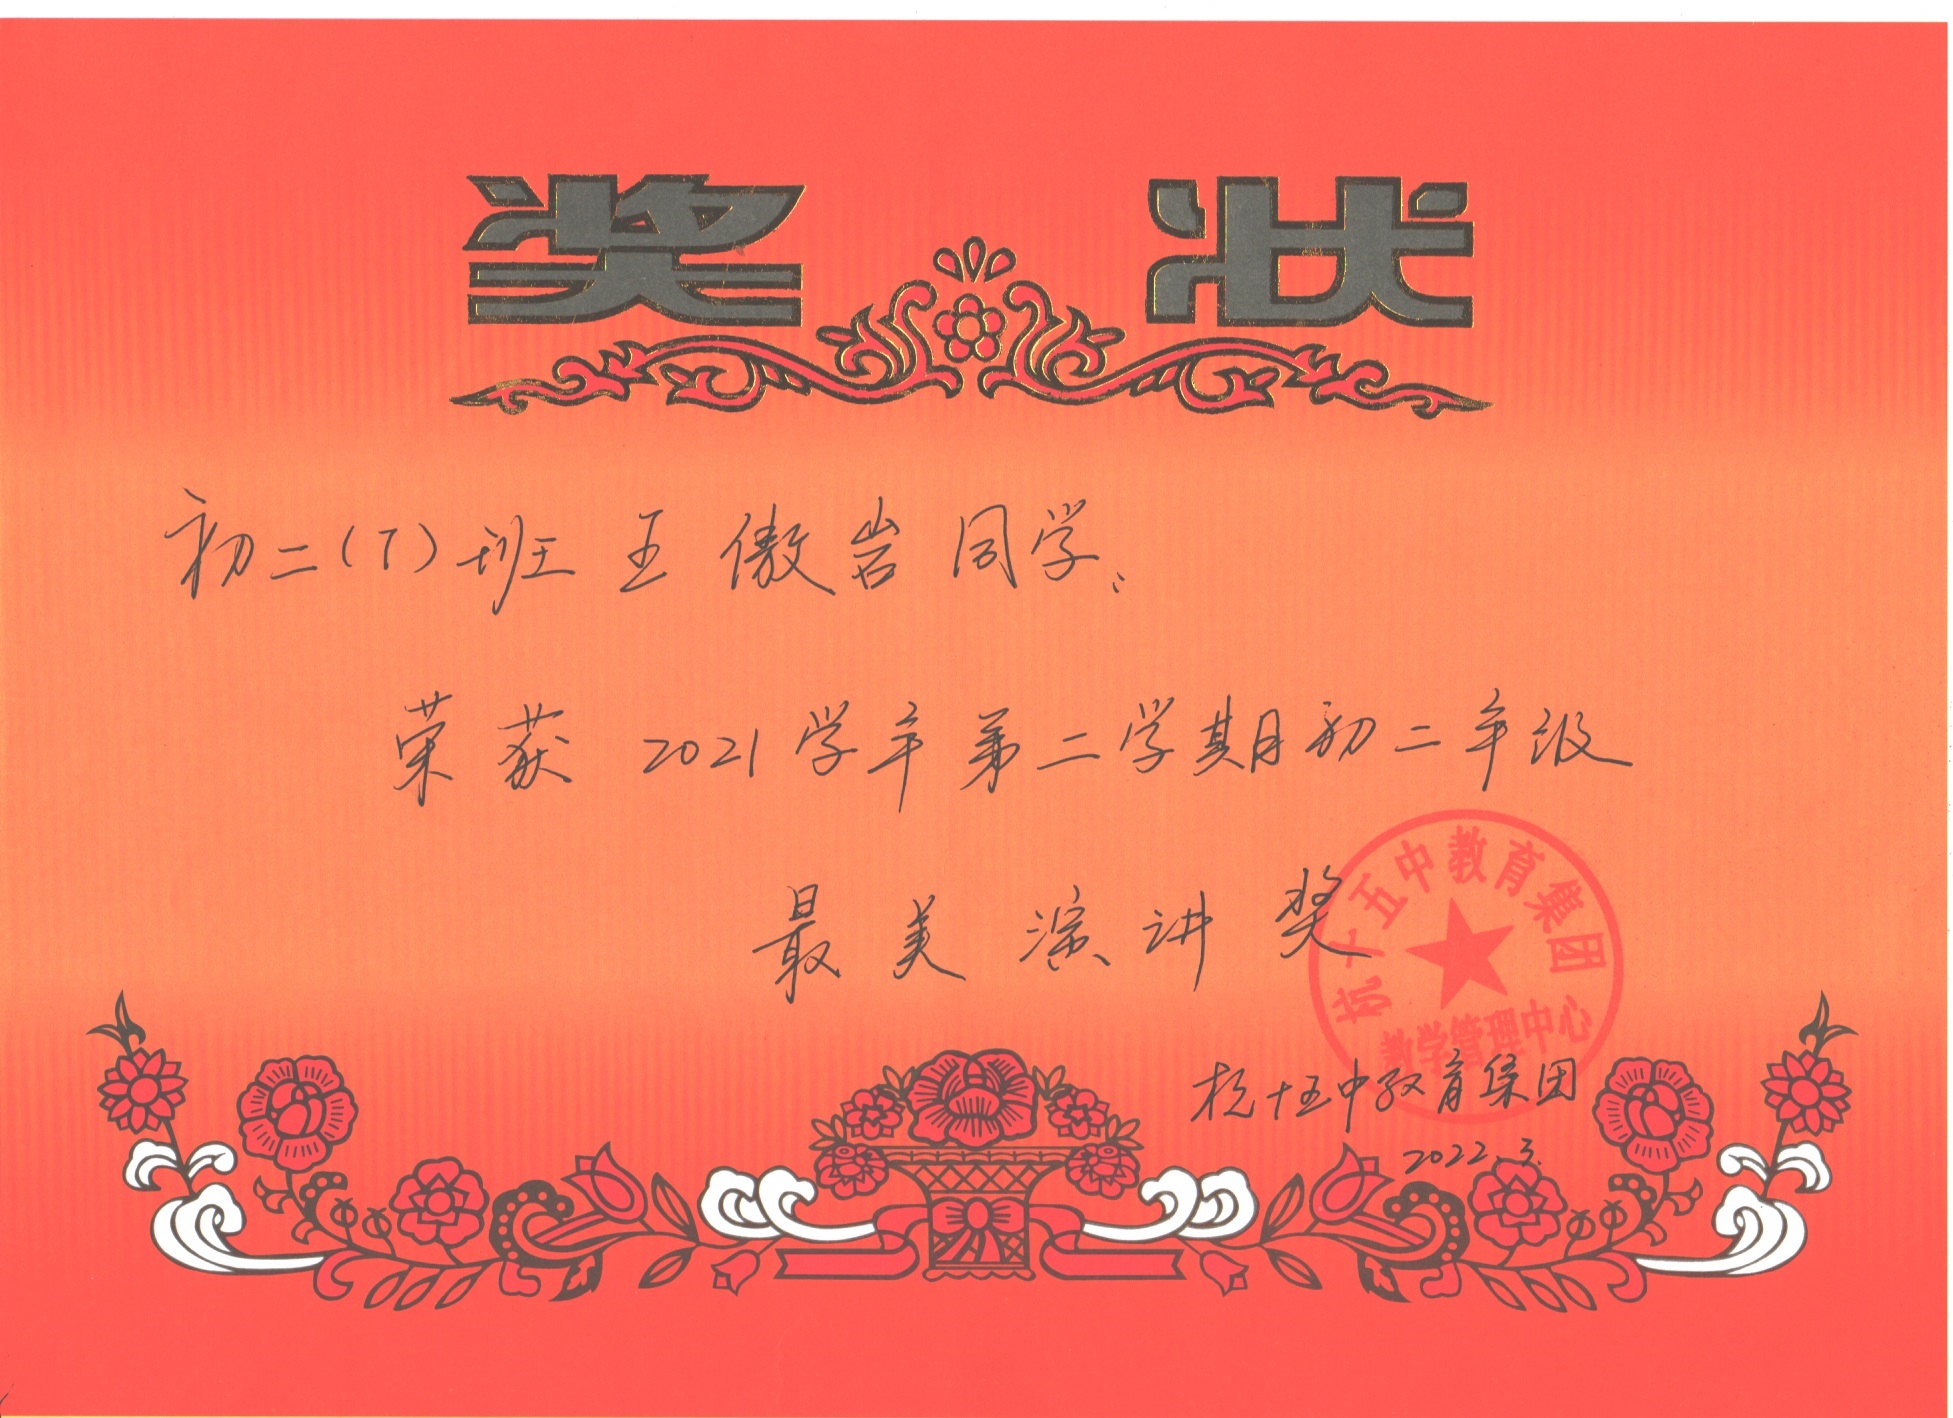 奖 状
初二(7)班 王傲岩同学:
荣获 2021学年第二学期初二年级
最美演讲奖
杭十五中教育集团
教学管理中心
杭十五中教育集团
2022.3.